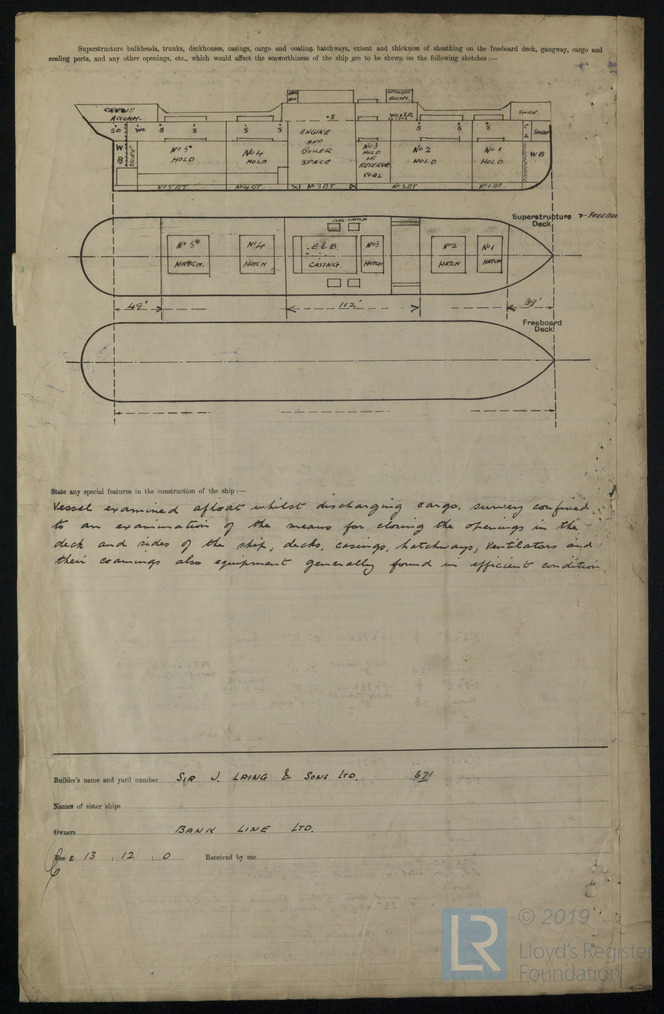 Superstructure bulkheads, trunks, deckhouses, casings, cargo and coaling hatchways, extent and thickness of sheathing on the freeboard deck, gangway, cargo and
coaling ports, and any other openings, etc., which would affect the seaworthiness of the ship are to be shewn on the following sketches :—
ACCOMM.
S.D WC S S S S S
W
B
No 5
HOLD
No 4
HOLD
ENGINE
AND
BOILER
SPACE
No 3
HOLD
OR
RESERVE
COAL
No 2
HOLD
No 1
HOLD
WB
No 5 BT No 4 BT No 3 BT No 2 BT No 1 BT
Superstructure
Deck
COAL HATCH
No 5
HATCH.
No 4
HATCH
E & B
CASING.
No 3
HATCH
No 2
HATCH
No 1
HATCH
49' 112' 39'
Freeboard
Deck
State any special features in the construction of the ship :—
Vessel examined afloat whilst discharging cargo. survey confined
to an examination of the means for closing the openings in the
deck and sides of the ship, decks, casings, hatchways, ventilators and
their coamings also equipment generally found in efficient condition.
Builder's name and yard number SIR J. LAING & SONS LTD. 671
Names of sister ships
Owners BANK LINE LTD.
Fee £ 13 : 12 : 0 Received by me
LR © 2019
Lloyd's Register
Foundation